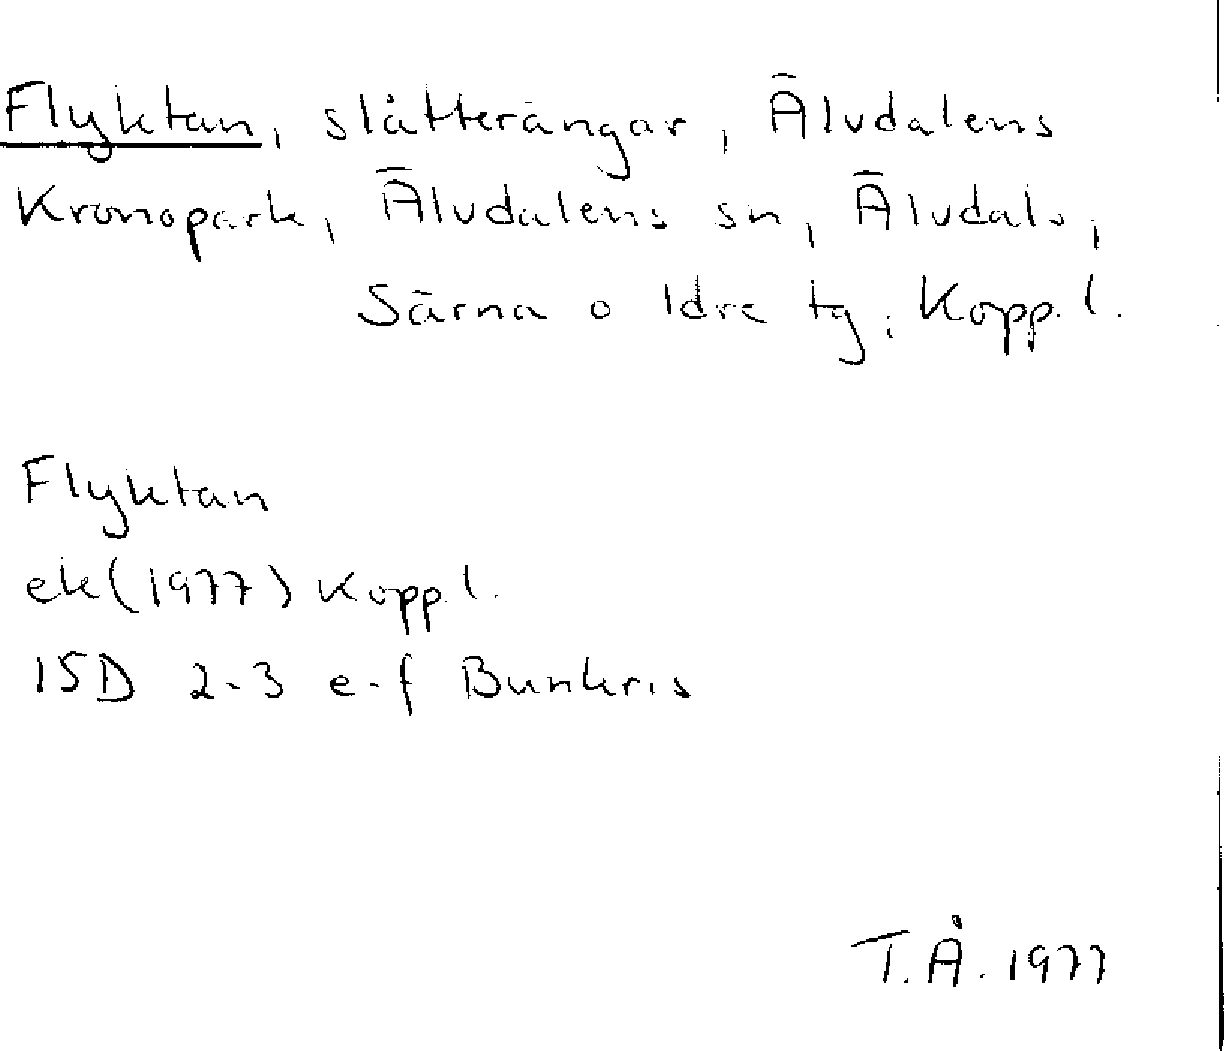 Flyktan, slåtterängar, Älvdalens
Kronopark, Älvdalens sn, Älvdals,
Särna o Idre tg, Kopp. l.
Flyktan
ek (1977) Kopp l.
15D 2-3 e-f Bunkris
T.Å. 1977